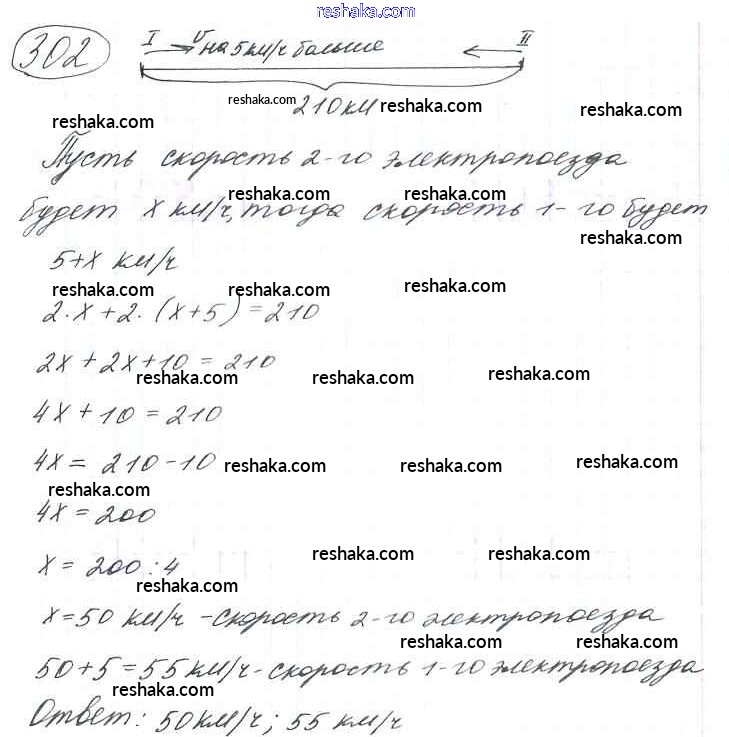 reshaka.com
302
I v на 5 км/ч больше II
reshaka.com 210 км reshaka.com reshaka.com
reshaka.com
Пусть скорость 2-го электропоезда
reshaka.com reshaka.com
будет x км/ч, тогда скорость 1-го будет
reshaka.com
5+x км/ч
reshaka.com reshaka.com reshaka.com
2·x+2·(x+5)=210
2x+2x+10=210
reshaka.com reshaka.com reshaka.com
4x+10=210
4x=210-10 reshaka.com reshaka.com reshaka.com
reshaka.com
4x=200
reshaka.com reshaka.com
x=200:4
reshaka.com
x=50 км/ч -скорость 2-го электропоезда
reshaka.com reshaka.com
50+5=55 км/ч-скорость 1-го электропоезда
reshaka.com
Ответ: 50 км/ч; 55 км/ч